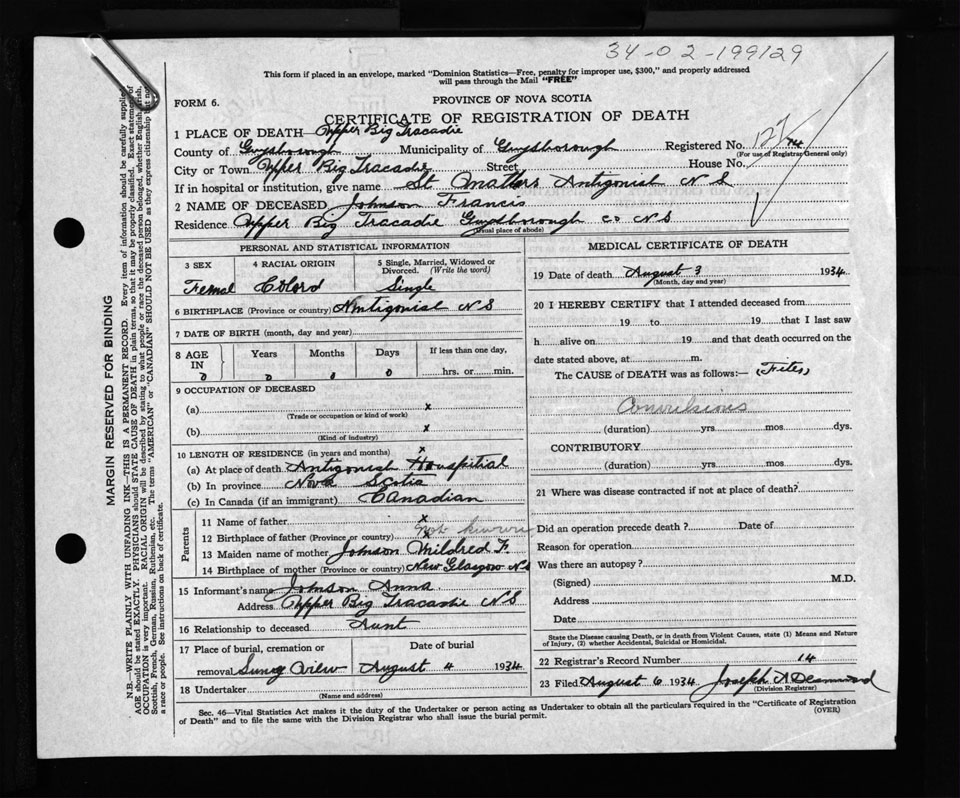 34-02-199129
This form if placed in an envelope, marked "Dominion Statistics—Free, penalty for improper use, $300," and properly addressed
will pass through the Mail "FREE"
FORM 6.
PROVINCE OF NOVA SCOTIA
CERTIFICATE OF REGISTRATION OF DEATH
1 PLACE OF DEATH Upper Big Tracadie
County of Guysborough Municipality of Guysborough Registered No.
(For use of Registrar General only)
City or Town Upper Big Tracadie Street House No.
If in hospital or institution, give name St Antigonish N S
2 NAME OF DECEASED Johnson Francis
Residence Upper Big Tracadie Guysborough co N S
(Usual place of abode)
PERSONAL AND STATISTICAL INFORMATION
3 SEX 4 RACIAL ORIGIN 5 Single, Married, Widowed or
Divorced. (Write the word)
Femal Colord Single
6 BIRTHPLACE (Province or country) Antigonish N S
7 DATE OF BIRTH (month, day and year)
8 AGE IN Years Months Days If less than one day,
0 0 0 0 hrs. or min.
9 OCCUPATION OF DECEASED
(a) x
(Trade or occupation or kind of work)
(b) x
(Kind of industry)
10 LENGTH OF RESIDENCE (in years and months) x
(a) At place of death Antigonish Houspitial
(b) In province Nova Scotia
(c) In Canada (if an immigrant) Canadian
Parents
11 Name of father x
12 Birthplace of father (Province or country) x not known
13 Maiden name of mother Johnson Mildred F
14 Birthplace of mother (Province or country) New Glasgow N S
15 Informant's name Johnson Anna
Address Upper Big Tracadie N S
16 Relationship to deceased Aunt
17 Place of burial, cremation or Date of burial
removal August 4 1934
18 Undertaker
(Name and address)
MEDICAL CERTIFICATE OF DEATH
19 Date of death August 3 1934
(Month, day and year)
20 I HEREBY CERTIFY that I attended deceased from
19 to 19 that I last saw
h alive on 19 and that death occurred on the
date stated above, at m.
The CAUSE of DEATH was as follows:— (Fites)
Convulsions
(duration) yrs mos dys.
CONTRIBUTORY
(duration) yrs mos. dys.
21 Where was disease contracted if not at place of death?
Did an operation precede death? Date of
Reason for operation
Was there an autopsy?
(Signed) M.D.
Address
Date
State the Disease causing Death, or in death from Violent Causes, state (1) Means and Nature
of Injury, (2) whether Accidental, Suicidal or Homicidal.
22 Registrar's Record Number 14
23 Filed August 6 1934 Joseph A Desmond
(Division Registrar)
Sec. 46—Vital Statistics Act makes it the duty of the Undertaker or person acting as Undertaker to obtain all the particulars required in the "Certificate of Registration
of Death" and to file the same with the Division Registrar who shall issue the burial permit.
(OVER)
MARGIN RESERVED FOR BINDING
N.B.—WRITE PLAINLY WITH UNFADING INK—THIS IS A PERMANENT RECORD. Every item of information should be carefully supplied.
AGE should be stated EXACTLY. PHYSICIANS should STATE CAUSE OF DEATH in plain terms, so that it may be properly classified. Exact statement of
OCCUPATION is very important. RACIAL ORIGIN will be described by stating to what people or race the deceased person belonged, whether English, Irish,
Scottish, French, German, Russian, Ruthenian, etc. The terms "AMERICAN" or "CANADIAN" SHOULD NOT BE USED as they express citizenship but not
a race or people. See instructions on back of certificate.